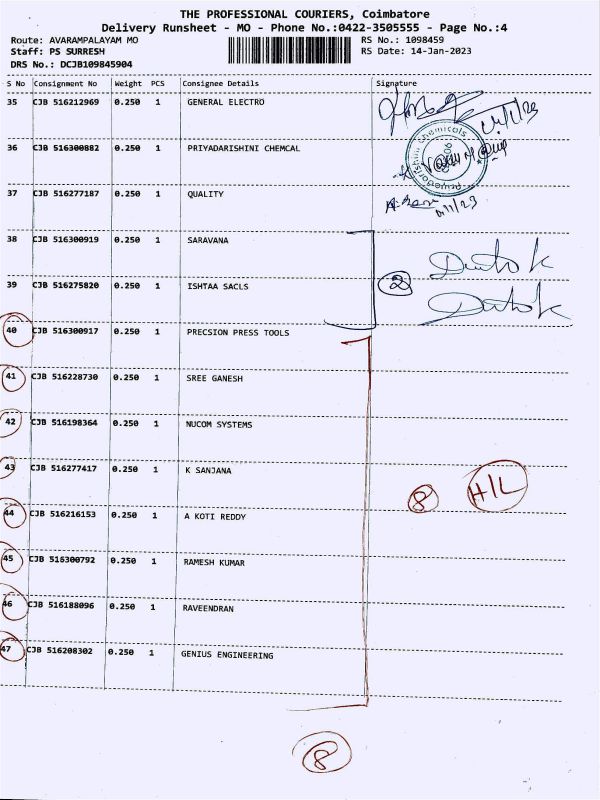 THE PROFESSIONAL COURIERS, Coimbatore
Delivery Runsheet - MO - Phone No.:0422-3505555 - Page No.:4
Route: AVARAMPALAYAM MO RS No.: 1098459
Staff: PS SURRESH RS Date: 14-Jan-2023
DRS No.: DCJB109845904
S No Consignment No Weight PCS Consignee Details Signature
35 CJB 516212969 0.250 1 GENERAL ELECTRO
36 CJB 516300882 0.250 1 PRIYADARISHINI CHEMCAL
37 CJB 516277187 0.250 1 QUALITY
38 CJB 516300919 0.250 1 SARAVANA
39 CJB 516275820 0.250 1 ISHTAA SACLS 2
40 CJB 516300917 0.250 1 PRECSION PRESS TOOLS
41 CJB 516228730 0.250 1 SREE GANESH
42 CJB 516198364 0.250 1 NUCOM SYSTEMS
43 CJB 516277417 0.250 1 K SANJANA
8 H/L
44 CJB 516216153 0.250 1 A KOTI REDDY
45 CJB 516300792 0.250 1 RAMESH KUMAR
46 CJB 516188096 0.250 1 RAVEENDRAN
47 CJB 516208302 0.250 1 GENIUS ENGINEERING
8